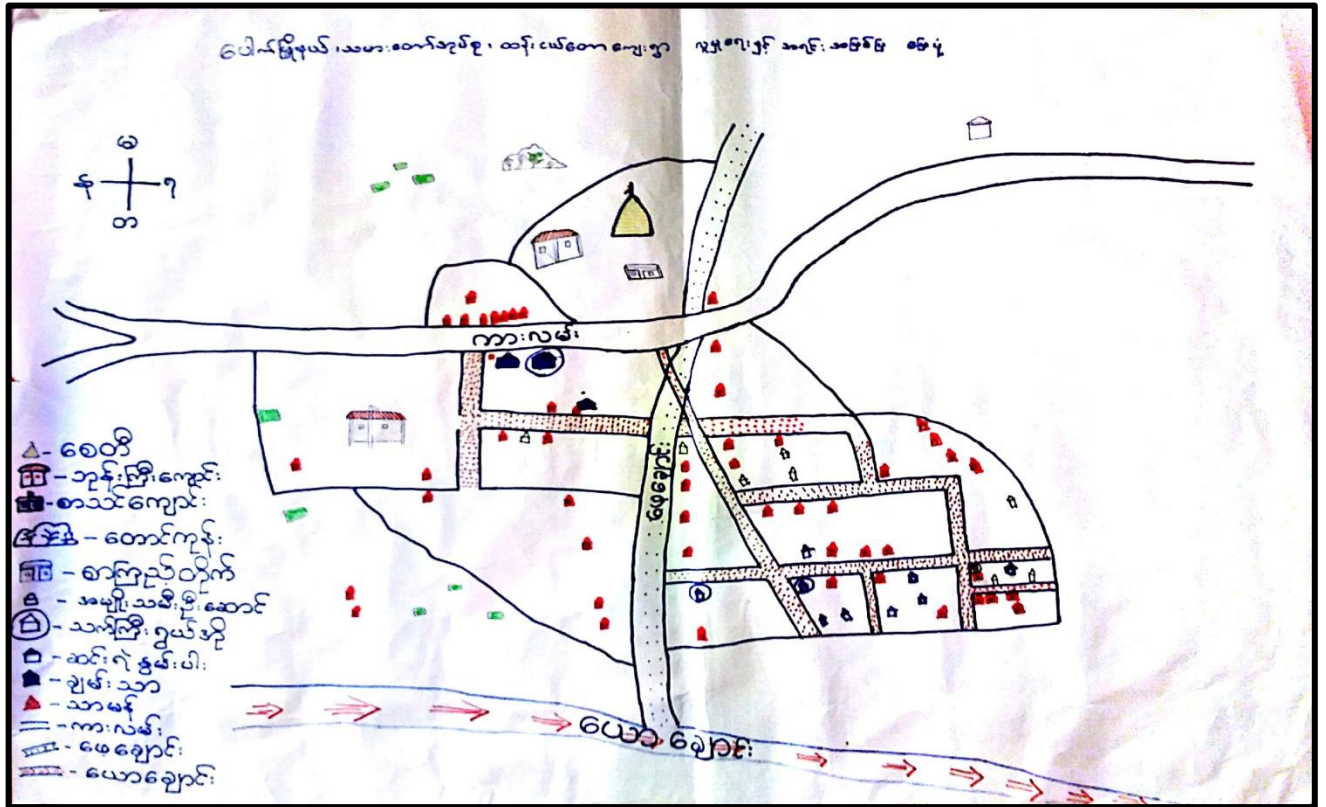 ပေါက်မြို့နယ်၊ သမားတော်အုပ်စု၊ ထန်းငယ်တောကျေးရွာ လူမှုရေးနှင့် အရင်းအမြစ်ပြ မြေပုံ
မ
န
ရ
တ
ကားလမ်း
ဖေချောင်း
ယောချောင်း
- စေတီ
- ဘုန်းကြီးကျောင်း
- စာသင်ကျောင်း
- တောင်ကုန်း
- စာကြည့်တိုက်
- အမျိုးသမီးဦးဆောင်
- သက်ကြီးရွယ်အို
- ဆင်းရဲနွမ်းပါး
- ချမ်းသာ
- သာမန်
- ကားလမ်း
- ဖေချောင်း
- ယောချောင်း